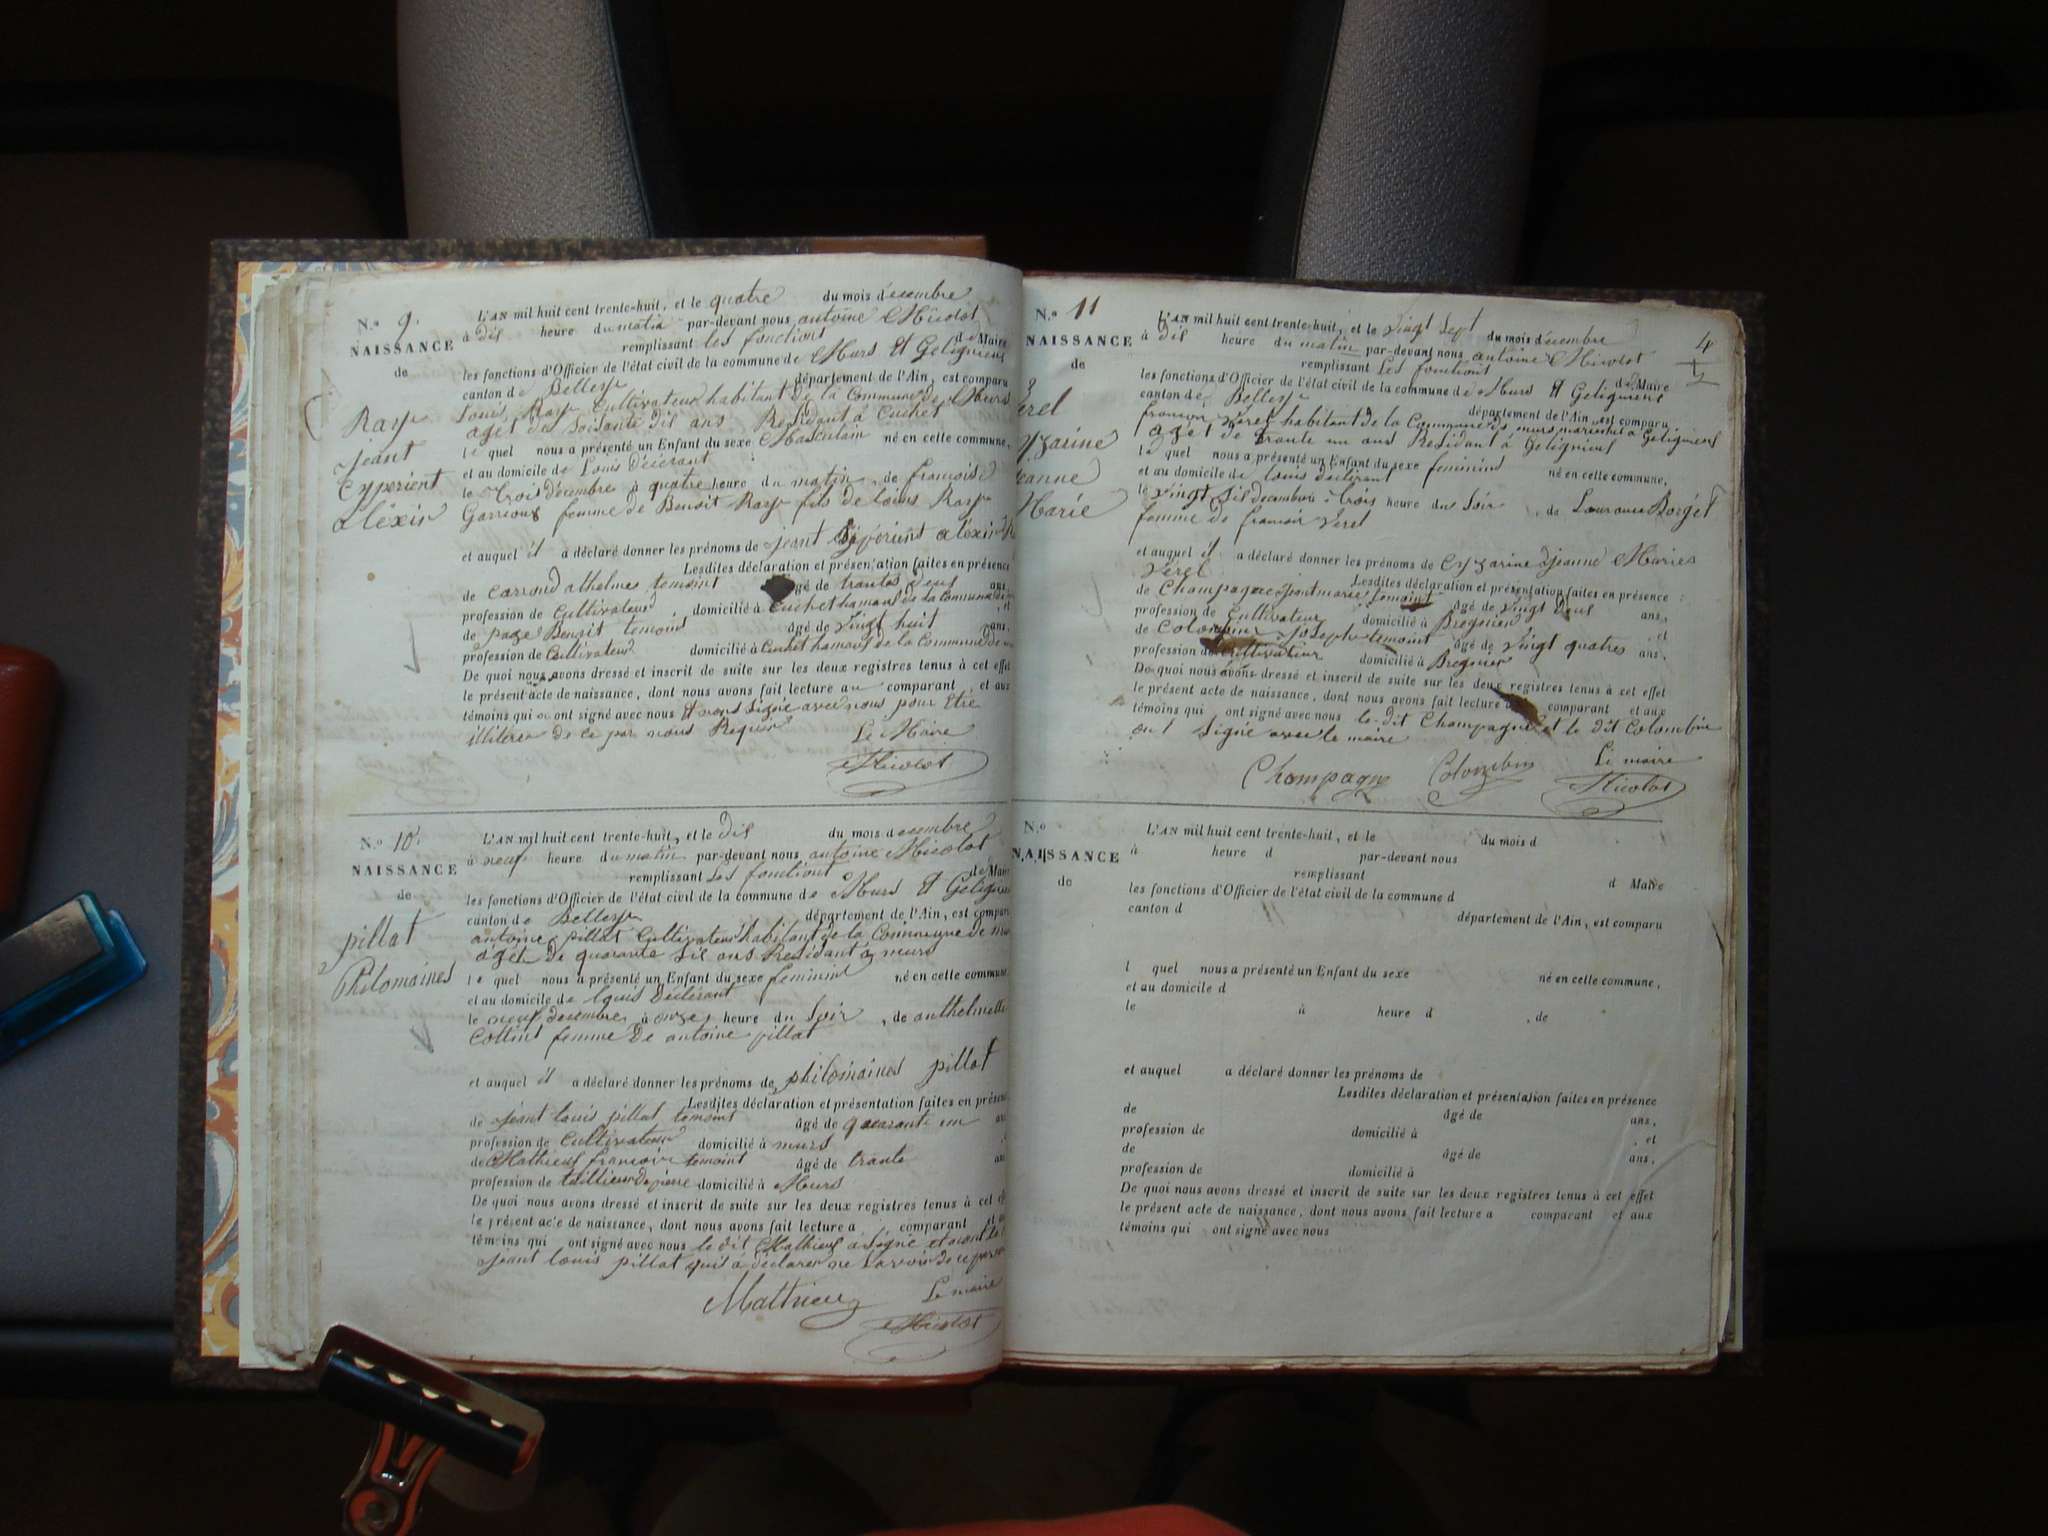 N.o 9.
NAISSANCE
de
Ray
jeant
Eyperient
aléxis
L'AN mil huit cent trente-huit, et le quatre du mois décembre
à dis heure du matin par-devant nous antoine Nicolot
remplissant les fonctions de Maire
les fonctions d'Officier de l'état civil de la commune de Murs et Geligneus
canton de Belley département de l'Ain, est comparu
Louis Ray Cultivateur habitant de la Commune de Murs
agét de soisante dis ans Residant à Cuchet
le quel nous a présenté un Enfant du sexe Masculain né en cette commune,
et au domicile de Louis déclérant
le trois décembre à quatre heure du matin, de francoise
femme de Benoit Ray fils de louis Ray
et auquel il a déclaré donner les prénoms de jeant Eyperient aléxis
Lesdites déclaration et présentation faites en présence
de Carrond athelmes temoint âgé de trantes deus ans,
profession de Cultivateur, domicilié à Cuchet hamaus de la Commune de
, et
de page Benoit temoint âgé de vingt huit ans,
profession de Cultivateur domicilié à Cuchet hamaus de la Commune de
De quoi nous avons dressé et inscrit de suite sur les deux registres tenus à cet effet
le présent acte de naissance, dont nous avons fait lecture au comparant, et aux
témoins qui ont signé avec nous et nons Signé avec nous pour Etre
illiterer de ce par nous Requier
Le Maire
Nicolot
N.o 10.
NAISSANCE
de
pillat
Philomaines
L'AN mil huit cent trente-huit, et le dis du mois decembre
à neuf heure du matin par-devant nous antoine Nicolot
remplissant les fonctiont de Maire
les fonctions d'Officier de l'état civil de la commune de Murs et Geligneus
canton de Belley département de l'Ain, est comparu
antoine pillat Cultivateur habitant de la Commune de murs
agét de quarante sis ans Residant à murs
le quel nous a présenté un Enfant du sexe feminint né en cette commune,
et au domicile de louis déclérant
le neuf decembre, à onze heure du Soir, de anthelmette
Cottint femme de antoine pillat
et auquel il a déclaré donner les prénoms de philomaines pillat
Lesdites déclaration et présentation faites en présence
de jeant louis pillat temoint âgé de quarante un ans
profession de Cultivateur domicilié à murs
de Mathieus francoir temoint âgé de trante ans
profession de taillieur de pierre domicilié à Murs
De quoi nous avons dressé et inscrit de suite sur les deux registres tenus à cet effet
le présent acte de naissance, dont nous avons fait lecture a comparant et aux
témoins qui ont signé avec nous le dit Mathieus à Signé et nont le
jeant louis pillat qui à déclarer ne Savoir de ce par
Mathieu
Le maire
Nicolot
4
N.o 11
NAISSANCE
de
Verel
Cyzarine
jeanne
Marie
L'AN mil huit cent trente-huit, et le vingt Sept du mois décembre
à dis heure du matin par-devant nous antoine Nicolot
remplissant Les fonctiont de Maire
les fonctions d'Officier de l'état civil de la commune de Murs et Geligneus
canton de Belley département de l'Ain, est comparu
francoir Verel habitant de la Commune de murs marechal à Geligneus
agét de trante un ans Residant à Geligneus
le quel nous a présenté un Enfant du sexe feminint né en cette commune,
et au domicile de louis déclérant
le vingt sis decembre à trois heure du Soir, de Laurance Borgét
femme de francoir Verel
et auquel il a déclaré donner les prénoms de Cyzarine Jeanne Maries
Verel
Lesdites déclaration et présentation faites en présence :
de Champagne jeant marie temoint âgé de vingt deus ans,
profession de Cultivateur domicilié à Bregnier, et
de Colombin Joseph temoint âgé de vingt quatres ans,
profession de Cultivateur domicilié à Bregnier
De quoi nous avons dressé et inscrit de suite sur les deux registres tenus à cet effet
le présent acte de naissance, dont nous avons fait lecture au comparant et aux
témoins qui ont signé avec nous le dit Champagne et le dit Colombin
ont Signé avec le maire
Champagne Colombin
Le maire
Nicolot
N.o
NAISSANCE
de
L'AN mil huit cent trente-huit, et le du mois d
à heure d par-devant nous
remplissant d Maire
les fonctions d'Officier de l'état civil de la commune d
canton d département de l'Ain, est comparu
l quel nous a présenté un Enfant du sexe né en cette commune,
et au domicile d
le à heure d , de
et auquel a déclaré donner les prénoms de
Lesdites déclaration et présentation faites en présence
de âgé de ans,
profession de domicilié à , et
de âgé de ans,
profession de domicilié à
De quoi nous avons dressé et inscrit de suite sur les deux registres tenus à cet effet
le présent acte de naissance, dont nous avons fait lecture a comparant et aux
témoins qui ont signé avec nous